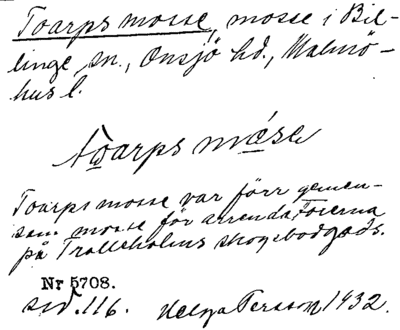 Toarps mosse, mosse i Bil-
linge sn., Onsjö hd., Malmö-
hus l.
toarps
Toarps mosse var förr gemen-
sam mosse för arrendatorerna
på Trolleholms skogsbodgods.
Nr 5708.
sid. 116. Helga Persson 1932.